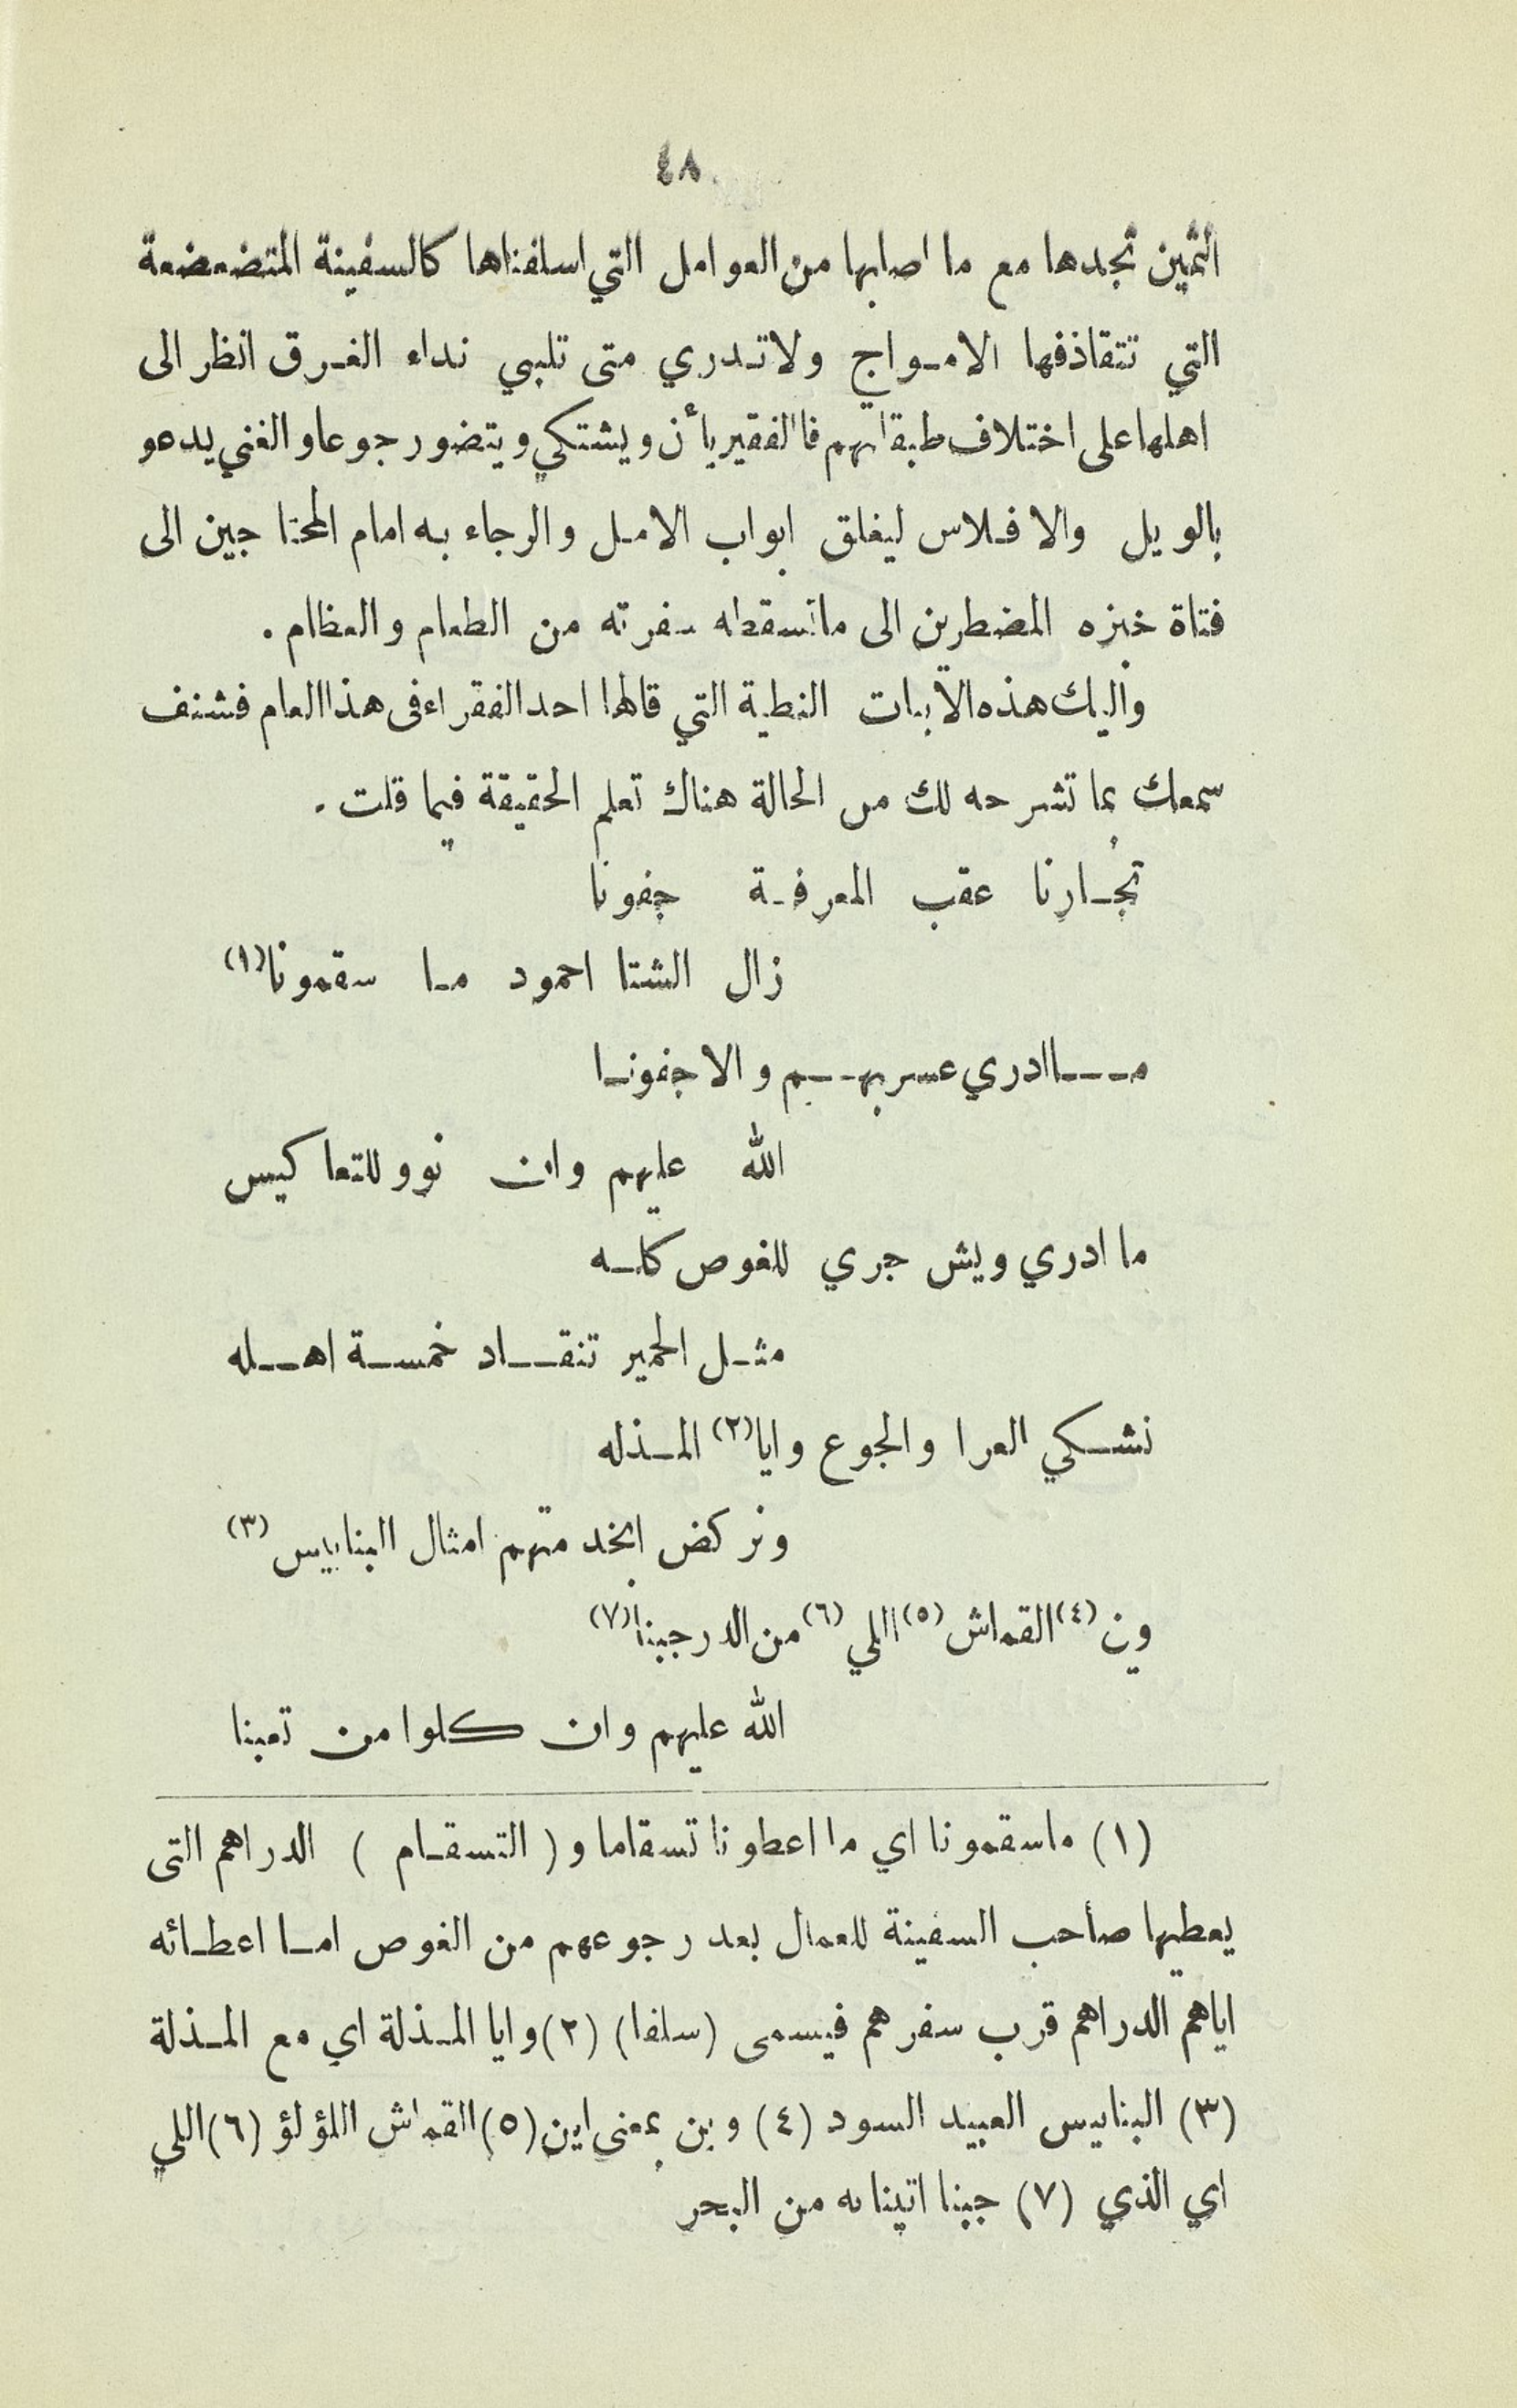 ٤٨
الثمين تجدها مع ما اصابها من العوامل التي اسلفناها كالسفينة المتضعضعة
التي تتقاذفها الامواج ولا تدري متى تلبي نداء الغرق انظر الى
اهلها على اختلاف طبقاتهم فالفقير يأن ويشتكي ويتضور جوعا والغني يدعو
بالويل والافلاس ليغلق ابواب الامل والرجاء به امام المحتاجين الى
فتاة خبزه المضطرين الى ما تسقطه سفرته من الطعام والعظام .
واليك هذه الابيات النطية التي قالها احد الفقراء في هذا العام فشنف
سمعك بما تشرحه لك من الحالة هناك تعلم الحقيقة فيما قلت .
تجارنا عقب المعرفة جفونا
زال الشتا احمود ما سقمونا (١)
ما ادري عسر بهم والا جفونا
الله عليهم وان نوو للتعاكيس
ما ادري ويش جري للغوص كله
مثل الحمير تنقاد خمسة اهله
نشكي العرا والجوع وايا (٢) المذله
ونركض ابخدمتهم امثال البنابيس (٣)
وين (٤) القماش (٥) اللي (٦) من الدر جبنا (٧)
الله عليهم وان كلوا من تعبنا
(١) ماسقمونا اي ما اعطونا تسقاما و ( التسقام ) الدراهم التى
يعطيها صاحب السفينة للعمال بعد رجوعهم من الغوص اما اعطائه
اياهم الدراهم قرب سفرهم فيسمى (سلفا) (٢) وايا المذلة اي مع المذلة
(٣) البنابيس العبيد السود (٤) وين بمعنى اين (٥) القماش اللؤلؤ (٦) اللي
اي الذي (٧) جبنا اتينا به من البحر